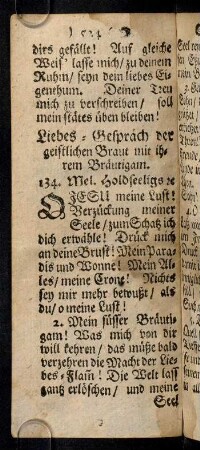 ) 534 (
dirs gefällt! Auf gleiche
Weiſ' laſſe mich/ zu deinem
Ruhm/ ſeyn dein liebes Ei-
genthum. Deiner Treu
mich zu verſchreiben/ ſoll
mein ſtätes üben bleiben!
Liebes-Geſpräch der
geiſtlichen Braut mit ih-
rem Bräutigam.
134. Mel. Holdſeeligs ꝛc
O JESU meine Luſt!
Verzückung meiner
Seele/ zum Schatz ich
dich erwähle! Drück mich
an deine Bruſt! Mein Para-
dis und Wonne! Mein Al-
les/ meine Crone! Nichts
ſey mir mehr bewußt/ als
du/ o meine Luſt!
2. Mein ſüſſer Bräuti-
gam! Was mich von dir
will kehren/ das müße bald
verzehren die Macht der Lie-
bes-Flam̃! Die Welt laſſ
gantz erlöſchen/ und meine
Seel